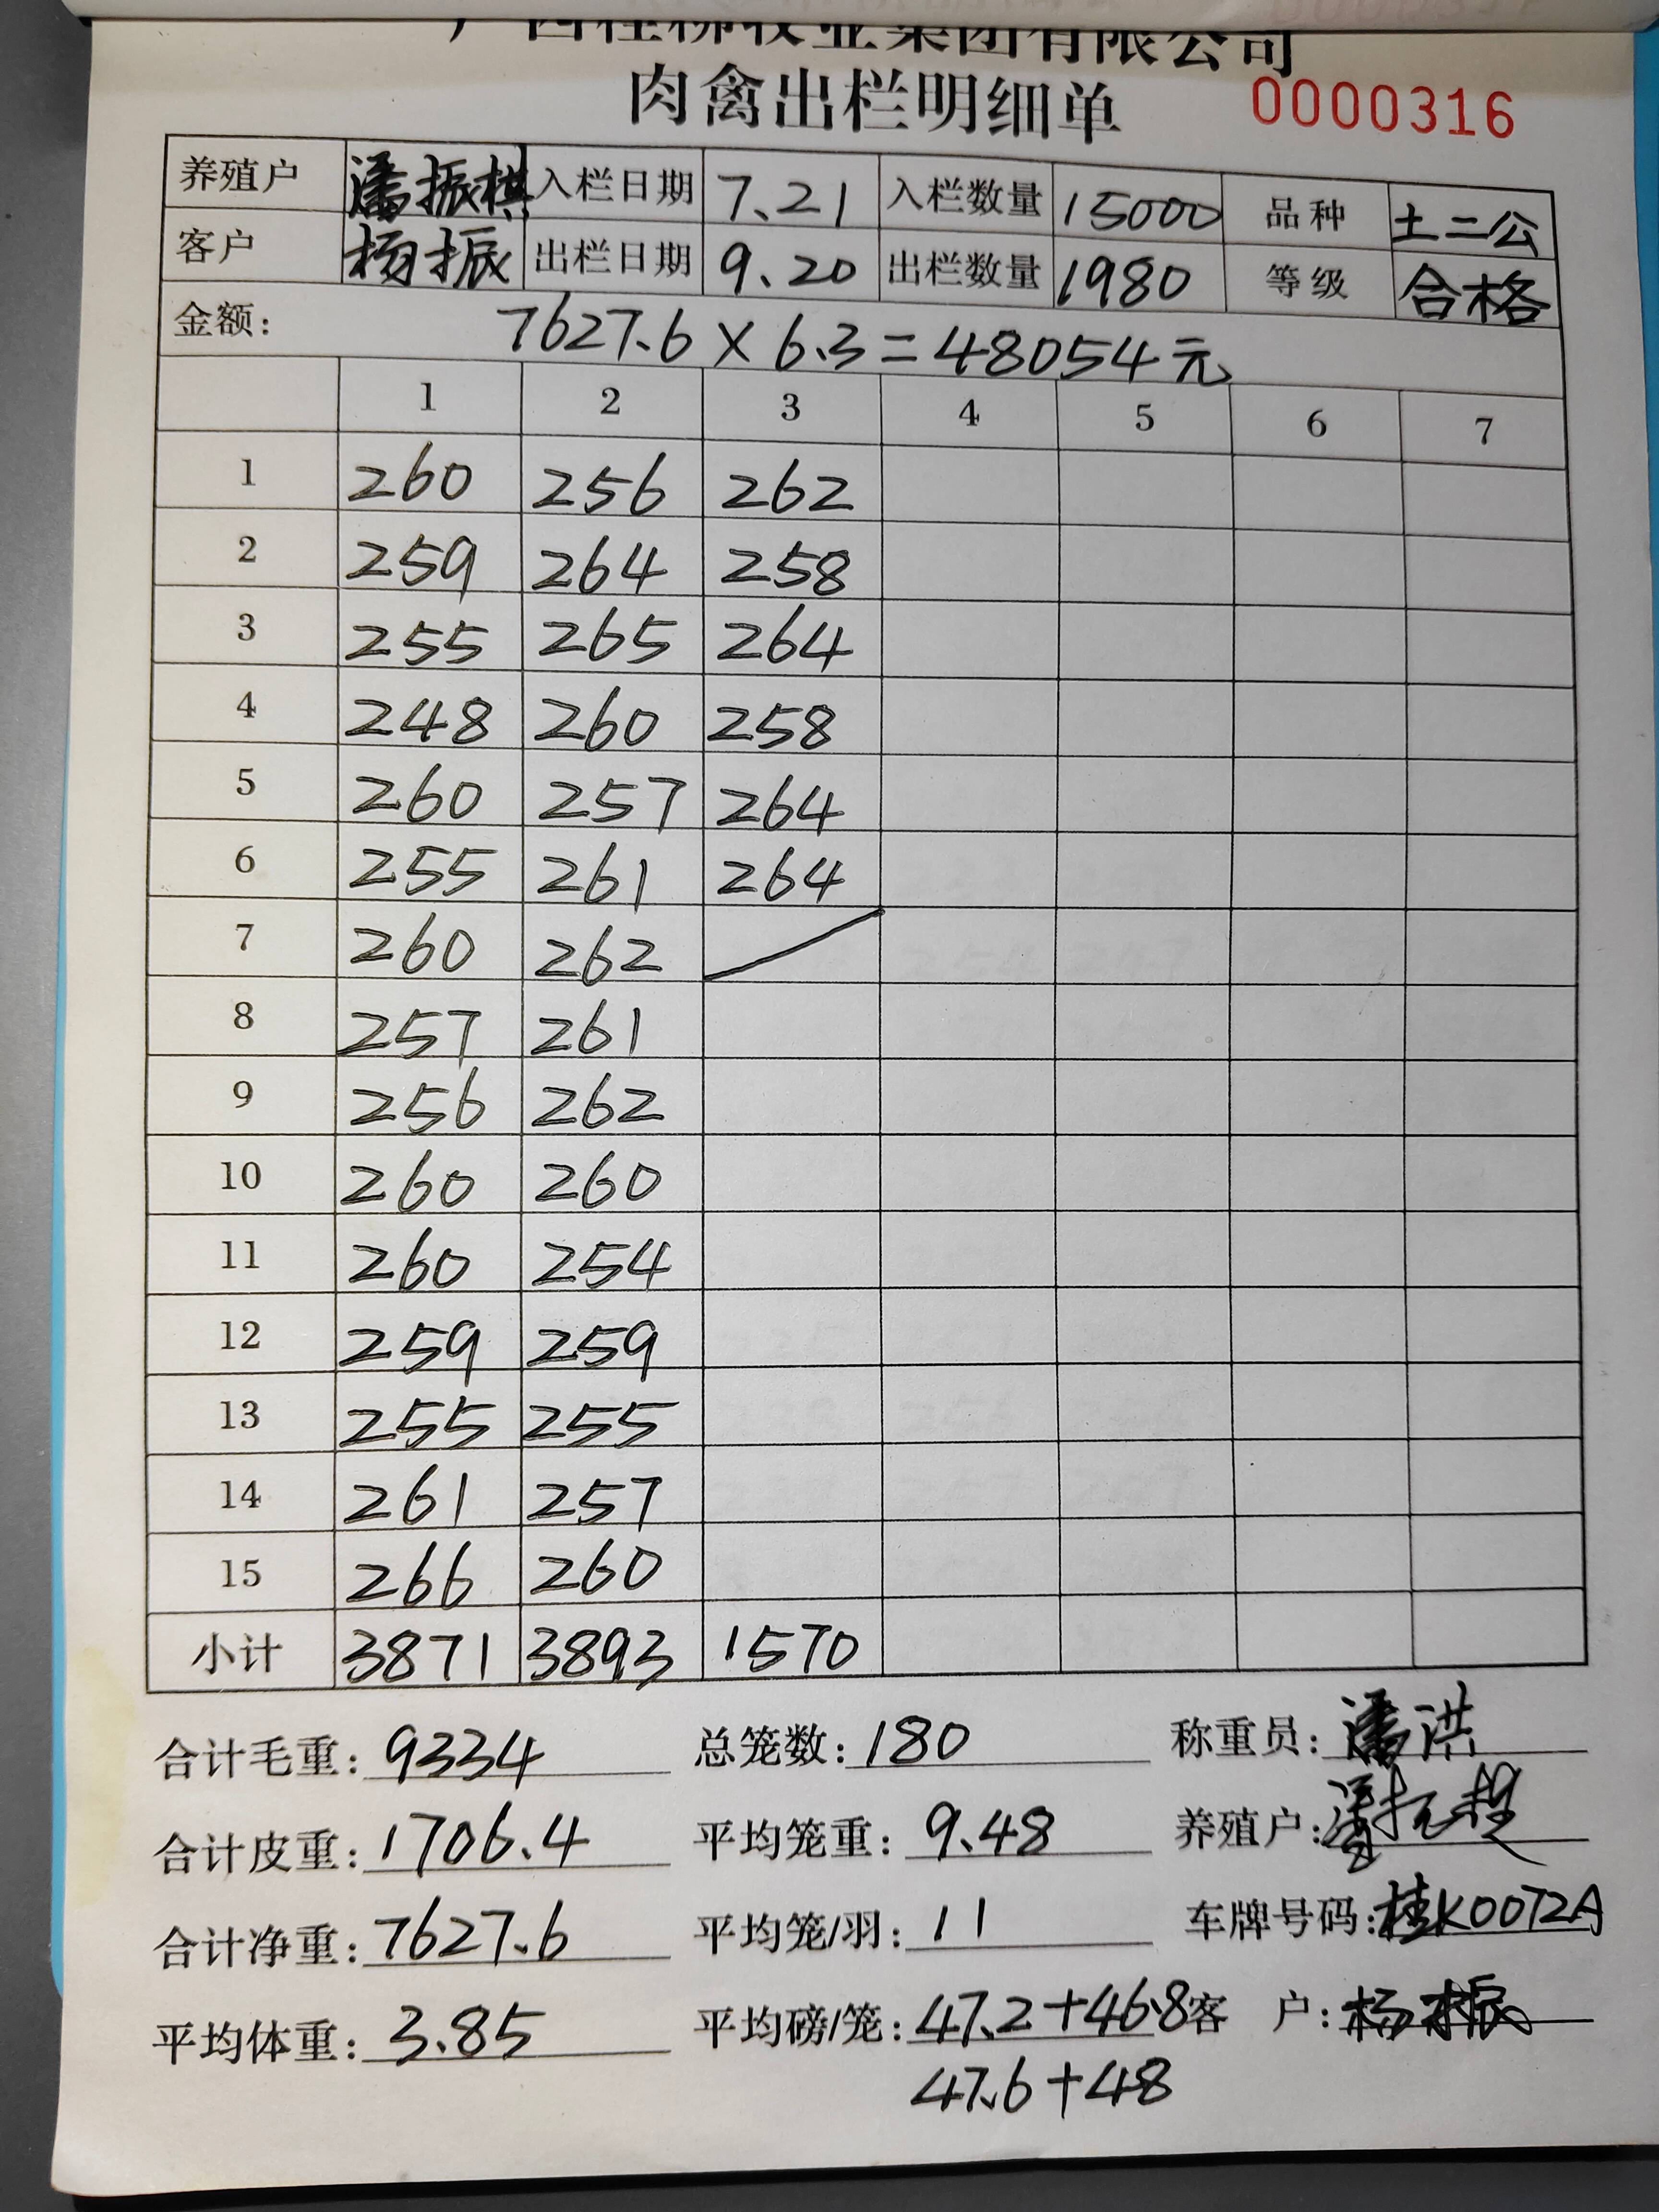 广西桂柳牧业集团有限公司
肉禽出栏明细单 0000316
养殖户 潘振棋 入栏日期 7.21 入栏数量 15000 品种 土二公
客户 杨振 出栏日期 9.20 出栏数量 1980 等级 合格
金额: 7627.6×6.3=48054元
1 2 3 4 5 6 7
1 260 256 262
2 259 264 258
3 255 265 264
4 248 260 258
5 260 257 264
6 255 261 264
7 260 262
8 257 261
9 256 262
10 260 260
11 260 254
12 259 259
13 255 255
14 261 257
15 266 260
小计 3871 3893 1570
合计毛重: 9334 总笼数: 180 称重员: 潘洪
合计皮重: 1706.4 平均笼重: 9.48 养殖户:
合计净重: 7627.6 平均笼/羽: 11 车牌号码: 桂K0072A
平均体重: 3.85 平均磅/笼: 47.2+46.8 客户: 杨振
47.6+48